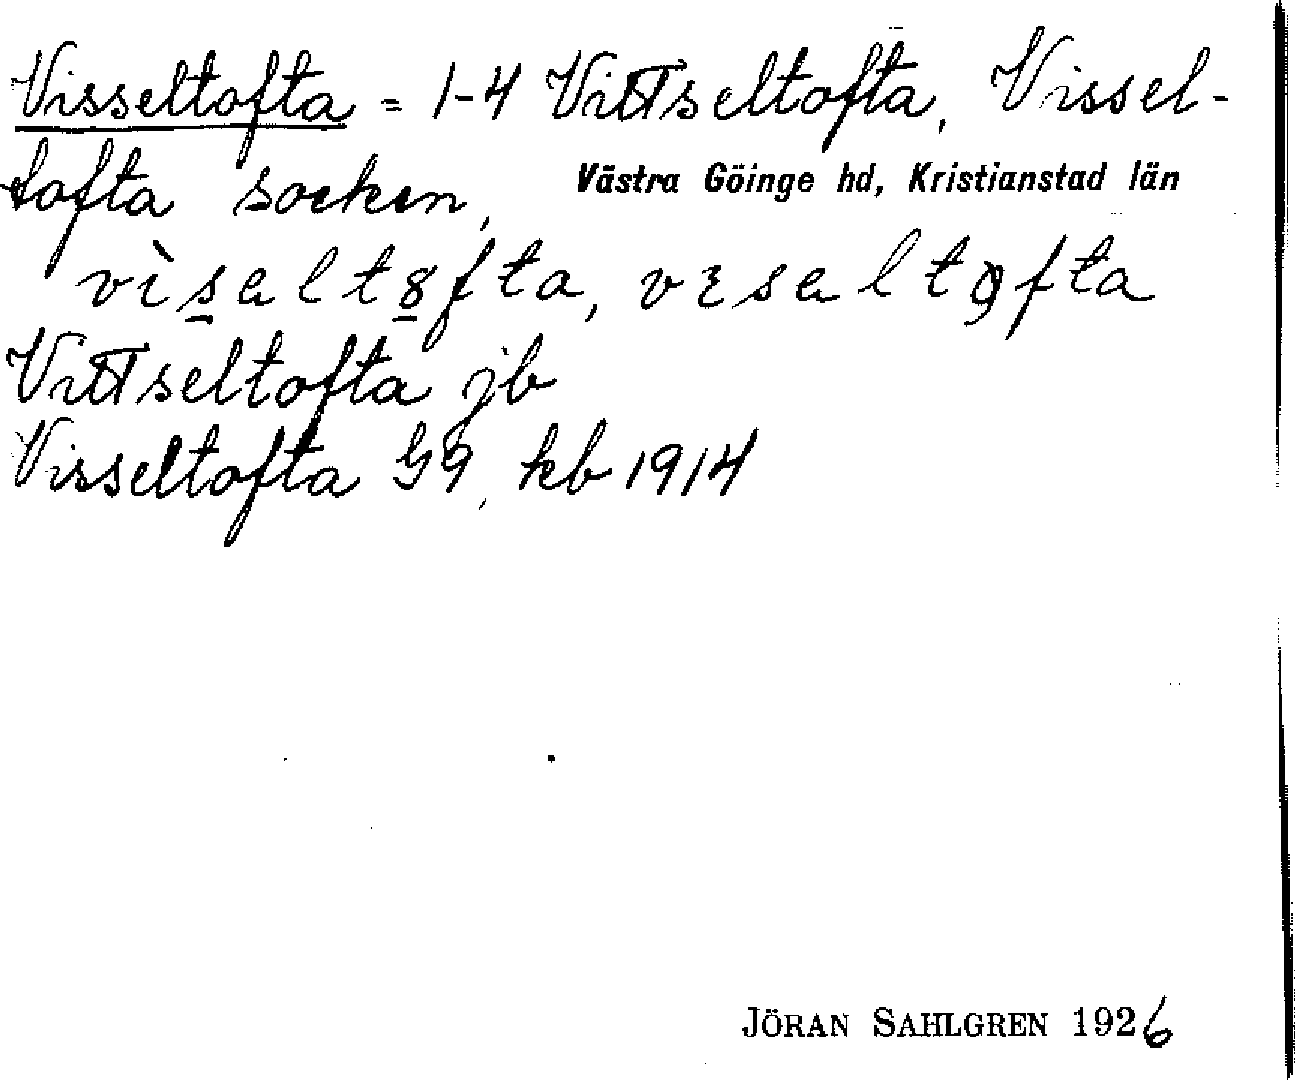 Visseltofta = 1-4 Vittseltofta, Vissel-
tofta socken, Västra Göinge hd, Kristianstad län
Vittseltofta jb
Visseltofta G9, kb 1914
JÖRAN SAHLGREN 1926